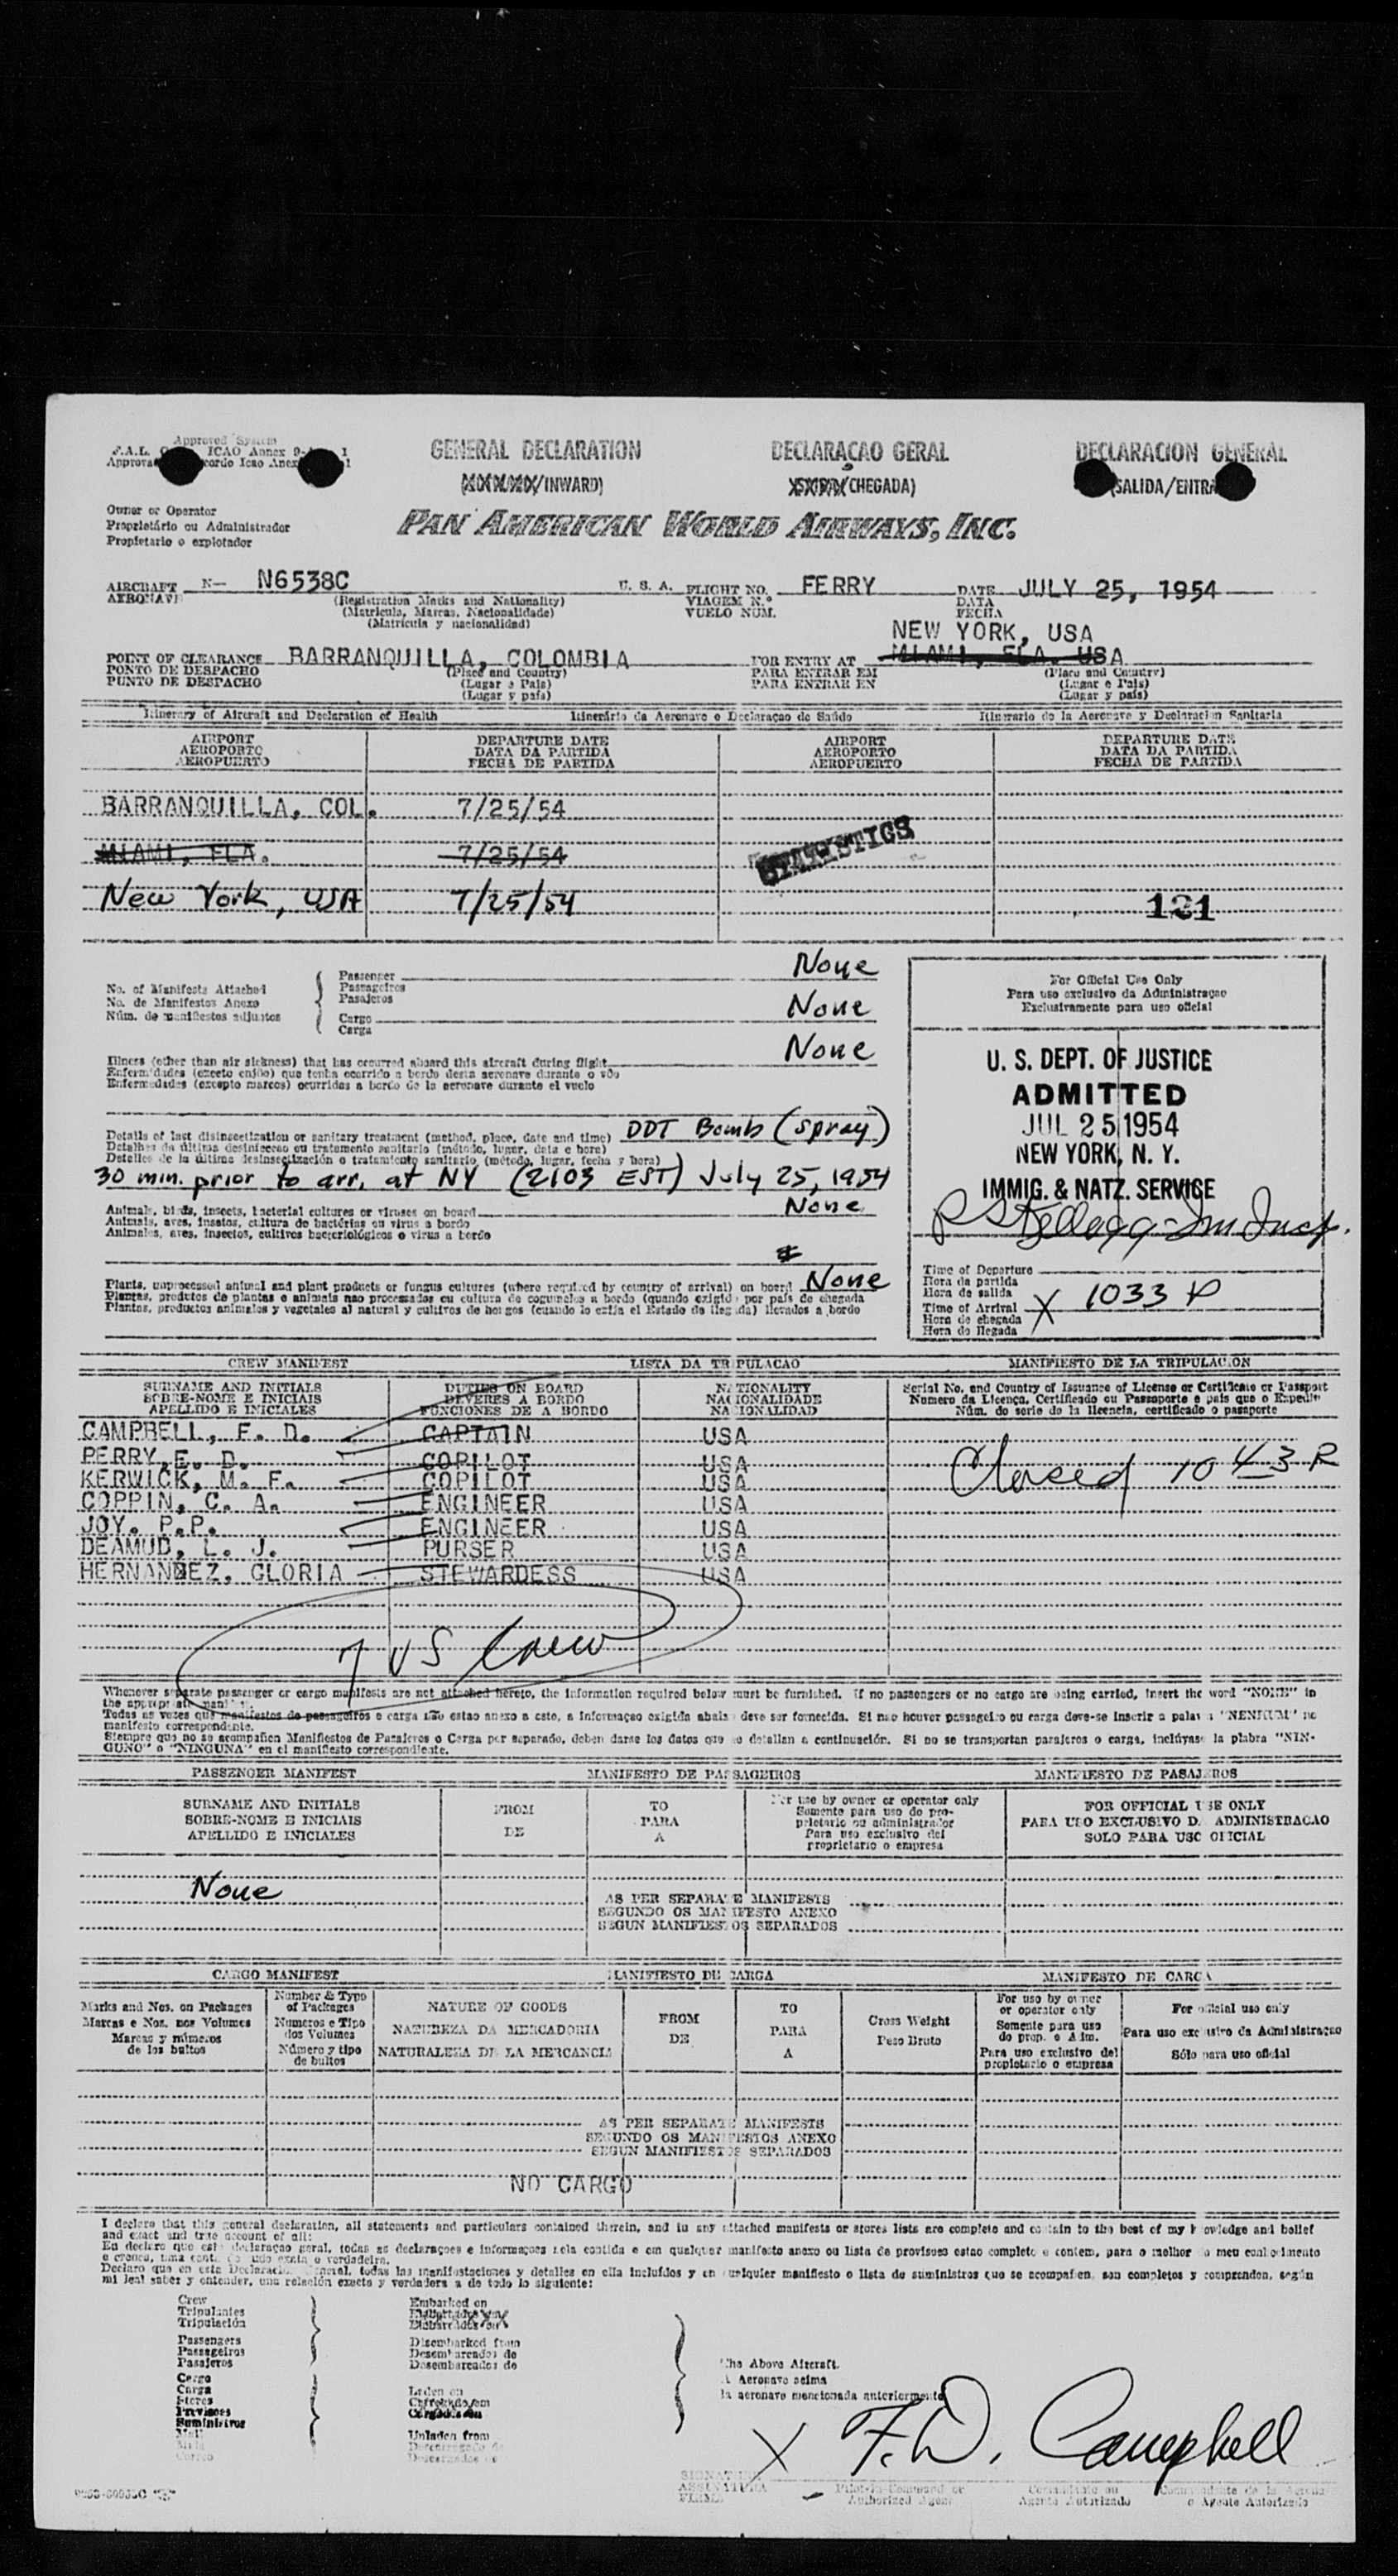 Approved System
F.A.L. ICAO Annex 9-
GENERAL DECLARATION
DECLARAÇAO GERAL
DECLARACION GENERAL
(XXXXXX/INWARD)
XXXXX(CHEGADA)
(SALIDA/ENTRA
Owner or Operator
Proprietário ou Administrador
Propietario o explotador
PAN AMERICAN WORLD AIRWAYS, INC.
AIRCRAFT N- N6538C U. S. A. FLIGHT NO. FERRY DATE JULY 25, 1954
AERONAVE (Registration Marks and Nationality) VIAGEM N.° DATA
(Matricula, Marcas, Nacionalidade) VUELO NUM. FECHA
(Matricula y nacionalidad)
NEW YORK, USA
POINT OF CLEARANCE BARRANQUILLA, COLOMBIA FOR ENTRY AT MIAMI, FLA. USA
PONTO DE DESPACHO (Place and Country) PARA ENTRAR EM (Place and Country)
PUNTO DE DESPACHO (Lugar e Pais) PARA ENTRAR EN (Lugar e Pais)
(Lugar y pais) (Lugar y pais)
Itinerary of Aircraft and Declaration of Health Itinerário da Aeronave e Declaraçao de Saúde Itinerario de la Aeronave y Declaracion Sanitaria
AIRPORT DEPARTURE DATE AIRPORT DEPARTURE DATE
AEROPORTO DATA DA PARTIDA AEROPORTO DATA DA PARTIDA
AEROPUERTO FECHA DE PARTIDA AEROPUERTO FECHA DE PARTIDA
BARRANQUILLA, COL. 7/25/54
MIAMI, FLA. 7/25/54
STATISTICS
New York, USA 7/25/54
121
No. of Manifests Attached
No. de Manifestos Anexo
Núm. de manifiestos adjuntos
Passenger None
Passageiros
Pasajeros
Cargo None
Carga
Illness (other than air sickness) that has occurred aboard this aircraft during flight None
Enfermidades (exceto enjôo) que tenha ocorrido a bordo desta aeronave durante o vôo
Enfermedades (excepto mareos) ocurridas a bordo de la aeronave durante el vuelo
Details of last disinsectization or sanitary treatment (method, place, date and time) DDT Bomb (spray)
Detalhes da última desinsecçao ou tratamento sanitario (método, lugar, data e hora)
Detalles de la última desinsectización o tratamiento sanitario (método, lugar, fecha y hora)
30 min. prior to arr. at NY (2103 EST) July 25, 1954
Animals, birds, insects, bacterial cultures or viruses on board None
Animais, aves, insetos, cultura de bactérias ou virus a bordo
Animales, aves, insectos, cultivos bacteriológicos o virus a bordo
Plants, unprocessed animal and plant products or fungus cultures (where required by country of arrival) on board None
Plantas, produtos de plantas e animais nao processados ou cultura de cogumelos a bordo (quando exigido por país de chegada
Plantas, productos animales y vegetales al natural y cultivos de hongos (cuando lo exija el Estado de llegada) llevados a bordo
For Official Use Only
Para uso exclusivo da Administraçao
Exclusivamente para uso oficial
U. S. DEPT. OF JUSTICE
ADMITTED
JUL 25 1954
NEW YORK, N. Y.
IMMIG. & NATZ. SERVICE
Time of Departure
Hora da partida
Hora de salida
Time of Arrival X 1033 P
Hora de chegada
Hora de llegada
CREW MANIFEST LISTA DA TRIPULACAO MANIFIESTO DE LA TRIPULACION
SURNAME AND INITIALS DUTIES ON BOARD NATIONALITY Serial No. and Country of Issuance of License or Certificate or Passport
SOBRE-NOME E INICIAIS DEVERES A BORDO NACIONALIDADE Numero da Licença, Certificado ou Passaporte e pais que o Expediu
APELLIDO E INICIALES FUNCIONES DE A BORDO NACIONALIDAD Núm. de serie de la licencia, certificado o pasaporte
CAMPBELL, F. D. CAPTAIN USA
PERRY, E. D. COPILOT USA
KERWICK, M. F. COPILOT USA
COPPIN, C. A. ENGINEER USA
JOY, P.P. ENGINEER USA
DEAMUD, L. J. PURSER USA
HERNANDEZ, GLORIA STEWARDESS USA
Closed 1043 P
7 US Crew
Whenever separate passenger or cargo manifests are not attached hereto, the information required below must be furnished. If no passengers or no cargo are being carried, insert the word "NONE" in
the appropriate manifest.
Todas as vezes que manifestos de passageiros e carga nao estao anexo a este, a informaçao exigida abaixo deve ser fornecida. Si nao houver passageiro ou carga deve-se inserir a palavra "NENHUM" no
manifesto correspondente.
Siempre que no se acompañen Manifiestos de Pasajeros o Carga por separado, deben darse los datos que se detallan a continuación. Si no se transportan pasajeros o carga, inclúyase la plabra "NIN-
GUNO" o "NINGUNA" en el manifiesto correspondiente.
PASSENGER MANIFEST MANIFESTO DE PASSAGEIROS MANIFIESTO DE PASAJEROS
SURNAME AND INITIALS FROM TO For use by owner or operator only FOR OFFICIAL USE ONLY
SOBRE-NOME E INICIAIS DE PARA Somente para uso do pro- PARA USO EXCLUSIVO DA ADMINISTRACAO
APELLIDO E INICIALES A prietario ou administrador SOLO PARA USO OFICIAL
Para uso exclusivo del
proprietario o empresa
None
AS PER SEPARATE MANIFESTS
SEGUNDO OS MANIFESTO ANEXO
SEGUN MANIFIESTOS SEPARADOS
CARGO MANIFEST MANIFIESTO DE CARGA MANIFESTO DE CARGA
Marks and Nos. on Packages Number & Type of Packages NATURE OF GOODS FROM TO Gross Weight For use by owner or operator only For official use only
Marcas e Nos. nos Volumes Numeros e Tipo dos Volumes NATUREZA DA MERCADORIA DE PARA Peso Bruto Somente para uso do prop. o Adm. Para uso exclusivo da Administraçao
Marcas y números de los bultos Número y tipo de bultos NATURALEZA DE LA MERCANCIA A Para uso exclusivo del propietario o empresa Sólo para uso oficial
AS PER SEPARATE MANIFESTS
SEGUNDO OS MANIFESTOS ANEXO
SEGUN MANIFIESTOS SEPARADOS
NO CARGO
I declare that this general declaration, all statements and particulars contained therein, and in any attached manifests or stores lists are complete and contain to the best of my knowledge and belief
and exact and true account of all:
En declaro que esta declaraçao geral, todas as declaraçoes e informaçoes nela contida e em qualquer manifesto anexo ou lista de provisoes estao completo e contem, para o melhor do meu conhecimento
e crença, uma conta de tudo exata e verdadeira.
Declaro que en esta Declaración General, todas las manifestaciones y detalles en ella incluídos y en cualquier manifiesto o lista de suministros que se acompañen, son completos y comprenden, según
mi leal saber y entender, una relación exacta y verdadera a de todo lo siguiente:
Crew
Tripulantes
Tripulación
Passengers
Passageiros
Pasajeros
Cargo
Carga
Stores
Provisoes
Suministros
Mail
Correo
Embarked on
Disembarked from
Desembarcados de
Desembarcados de
Laden on
Unladen from
The Above Aircraft.
A Aeronave acima
la aeronave mencionada anteriormente
X F. D. Campbell
SIGNATURE
ASSINATURA
FIRMA
Pilot-in-Command or
Authorized Agent
Comandante ou
Agente Autorizado
Comandante de la Aeronave
o Agente Autorizado